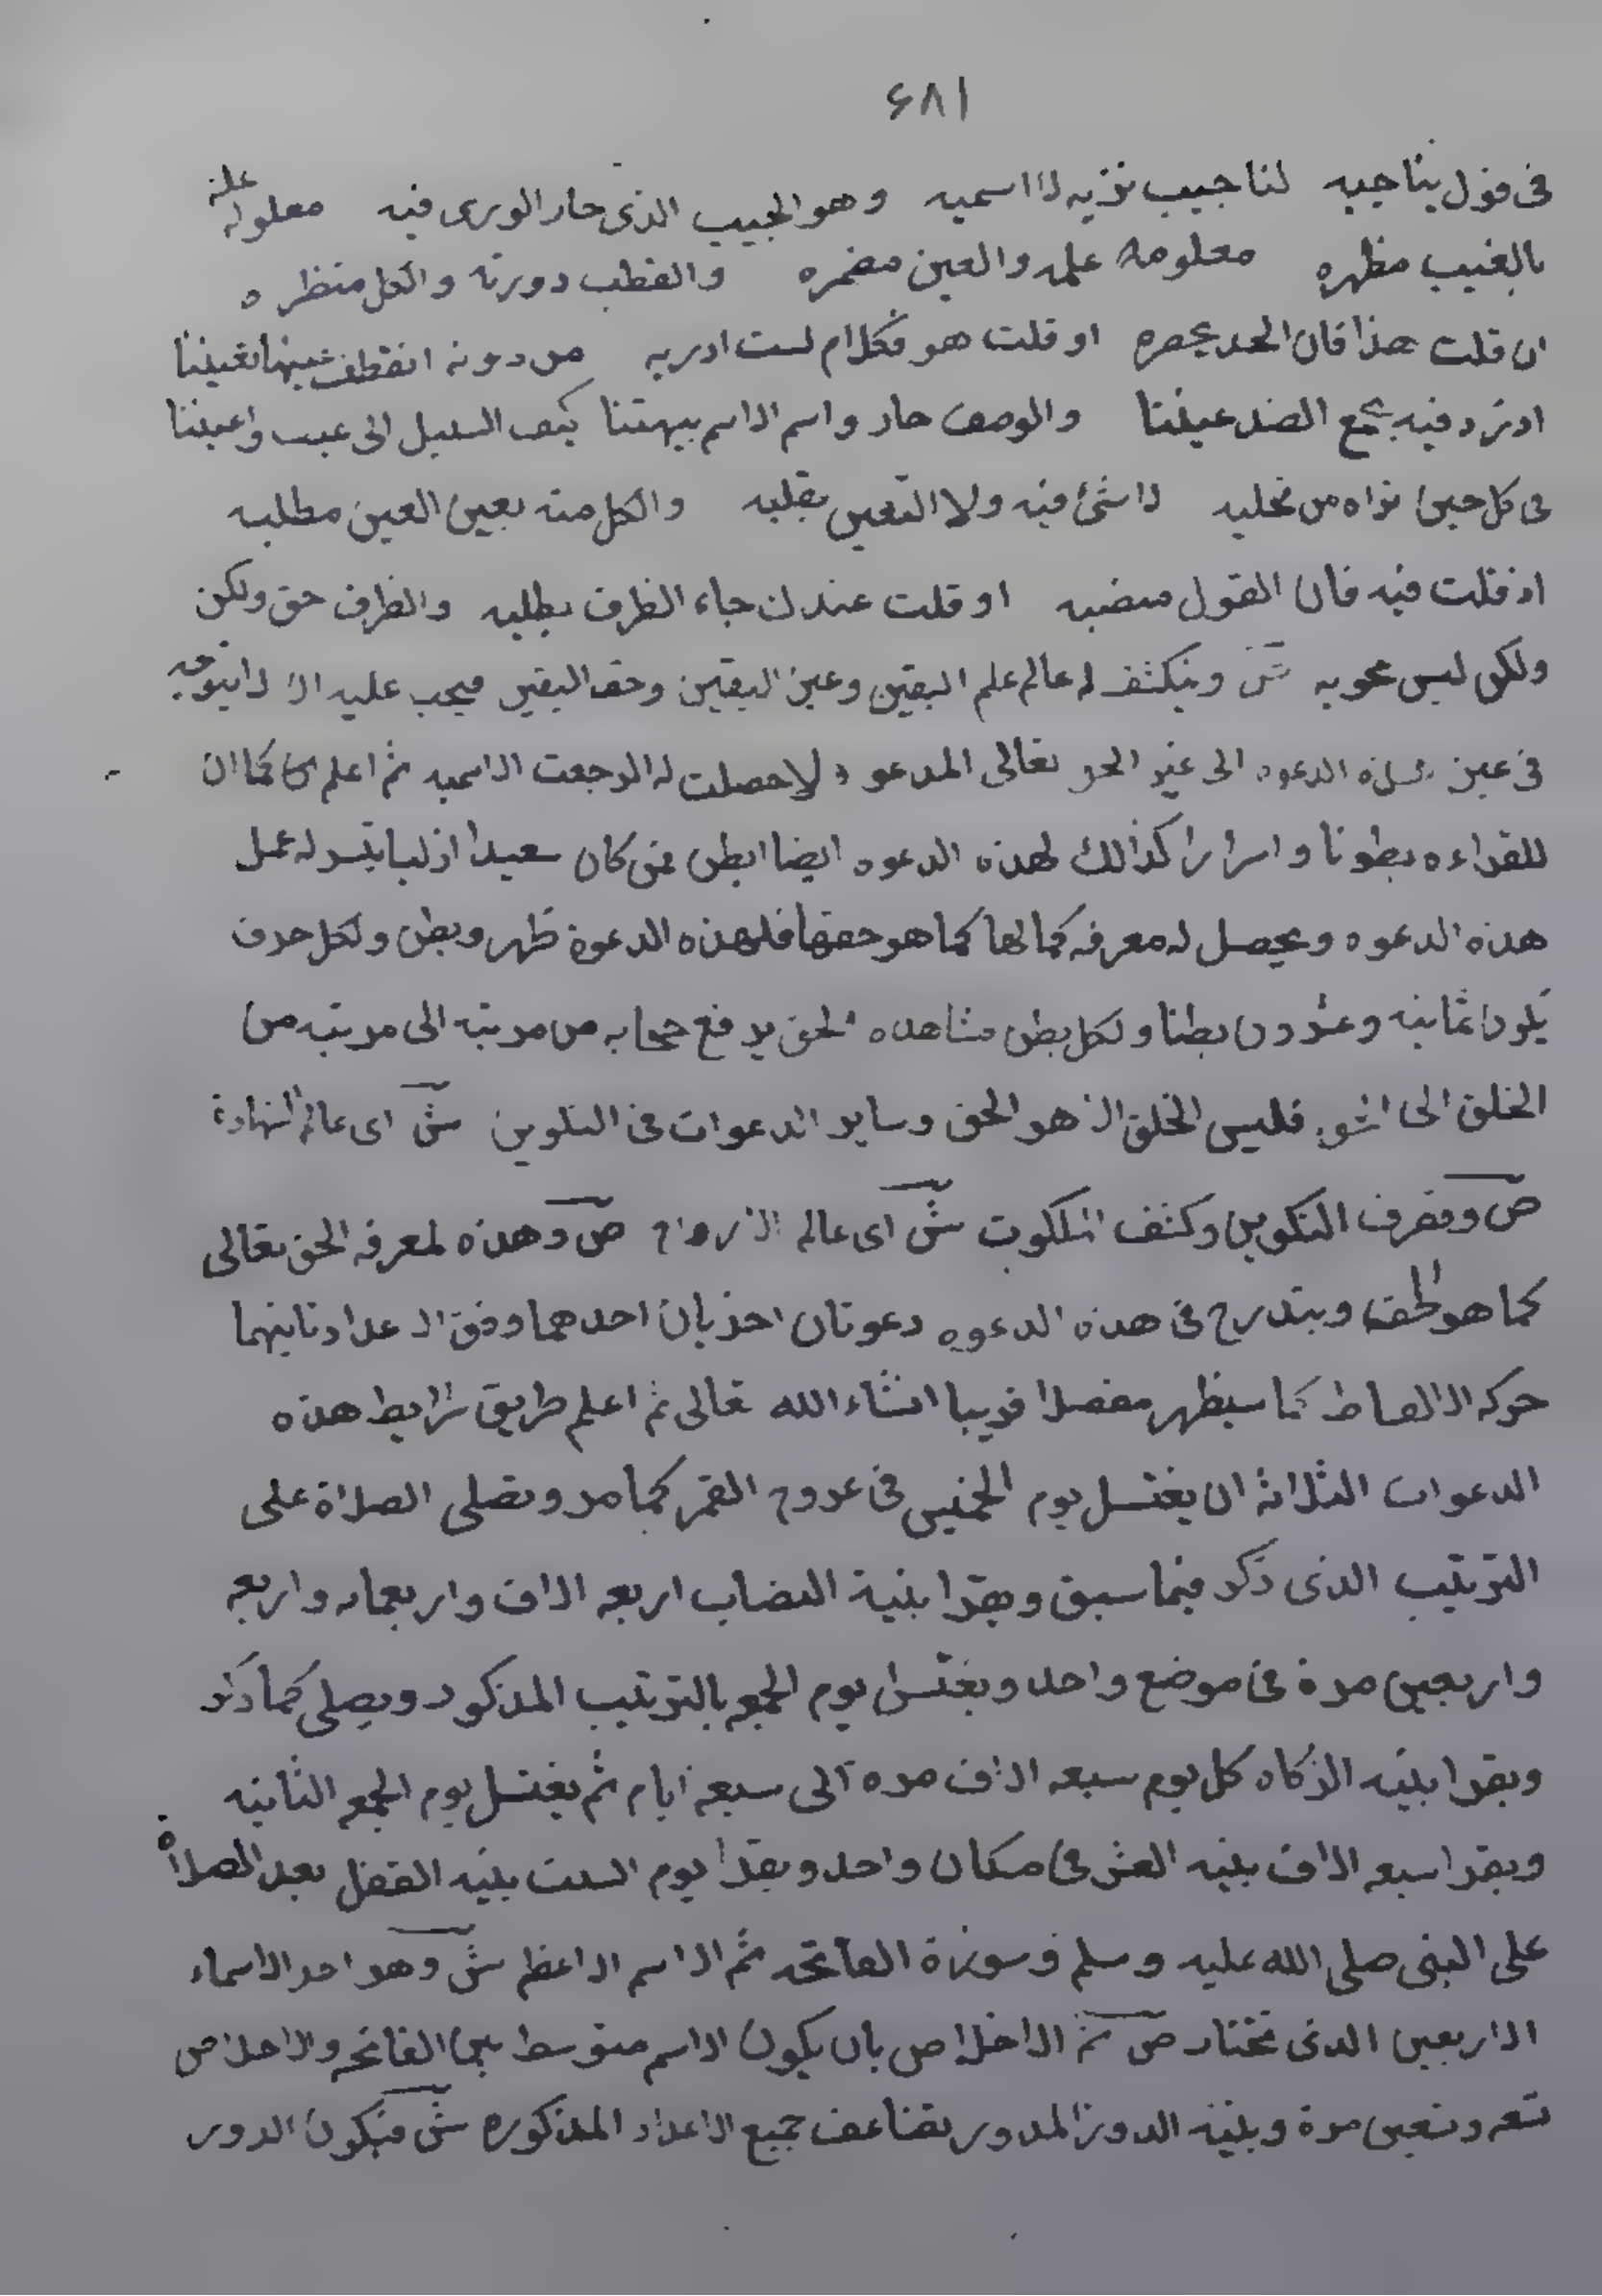 ۶۸۱
لنا حبيب نزيه لا اسميه وهو الحبيب الذى حار الورى فيه معلوله علة
بالغيب مظهره معلومه علمه والعين مضمره والقطب دورته والكل منظره
ان قلت هذا فان الحد يحصره او قلت هو فكلام لست ادريه من دونه
فيه يجمع الضد عيننا والوصف حار واسم الاسم كيف السبيل الى
فى كل حين نراه من لا شئ فيه ولا التعين يقلبه والكل منه بعين العين مطلبه
اذ قلت فيه فان القول منصبه او قلت عندن جاء الظرف يطلبه والظرف حق ولكن
ولكن ليس يحويه ش وينكشف له عالم علم اليقين وعين اليقين وحق اليقين فيجب عليه ان لا يتوجه
فى عين هذه الدعوه الى غير الحق تعالى المدعو حصلت له الرجعت الاسميه ثم اعلم كما ان
للقراءه بطونا واسرارا كذالك لهذه الدعوه ايضا ابطن فمن كان سعيدا ازليا يتيسر له عمل
هذه الدعوه ويحصل له معرفه كمالها كما هو حقها فلهذه الدعوة ظهر وبطن ولكل حرف
يكون ثمانيه وعشرون بطنا ولكل بطن مشاهده الحق يرفع حجابه من مرتبه الى مرتبه من
الخلق الى فليس الخلق الا هو الحق وساير الدعوات فى التلوين ش اى عالم الشهادة
ص وتصرف التكوين وكشف الملكوت ش اى عالم الارواح ص وهذه لمعرفه الحق تعالى
كما هو الحق ويتدرج فى هذه الدعوه دعوتان اخريان احدهما وفق الاعداد ثانيهما
حركه الالفاظ كما سيظهر مفصلا قريبا انشاء الله تعالى ثم اعلم طريق شرايط هذه
الدعوات الثلاثة ان يغتسل يوم الخميس فى عروج القمر كما مر وتصلى الصلاة على
الترتيب الذى ذكر فيما سبق ويقرا بنية النصاب اربعه الاف واربعمايه واربعه
واربعين مرة فى موضع واحد ويغتسل يوم الجمعه بالترتيب المذكور ويصلى كما ذكر
ويقرا بنيه الزكاه كل يوم سبعه الاف مره الى سبعة ايام ثم يغتسل يوم الجمعه الثانيه
ويقرا سبعه الاف بنيه العشر فى مكان واحد ويقرا يوم السبت بنيه القفل بعد الصلاة
على النبى صلى الله عليه وسلم وسورة الفاتحه ثم الاسم الاعظم ش وهو احد الاسماء
الاربعين الذى تختار ص ثم الاخلاص بان يكون الاسم متوسط بين الفاتحه والاخلاص
تسعه وتسعين مرة وبنيه الدور المدور تضاعف جميع الاعداد المذكوره ش فيكون الدور